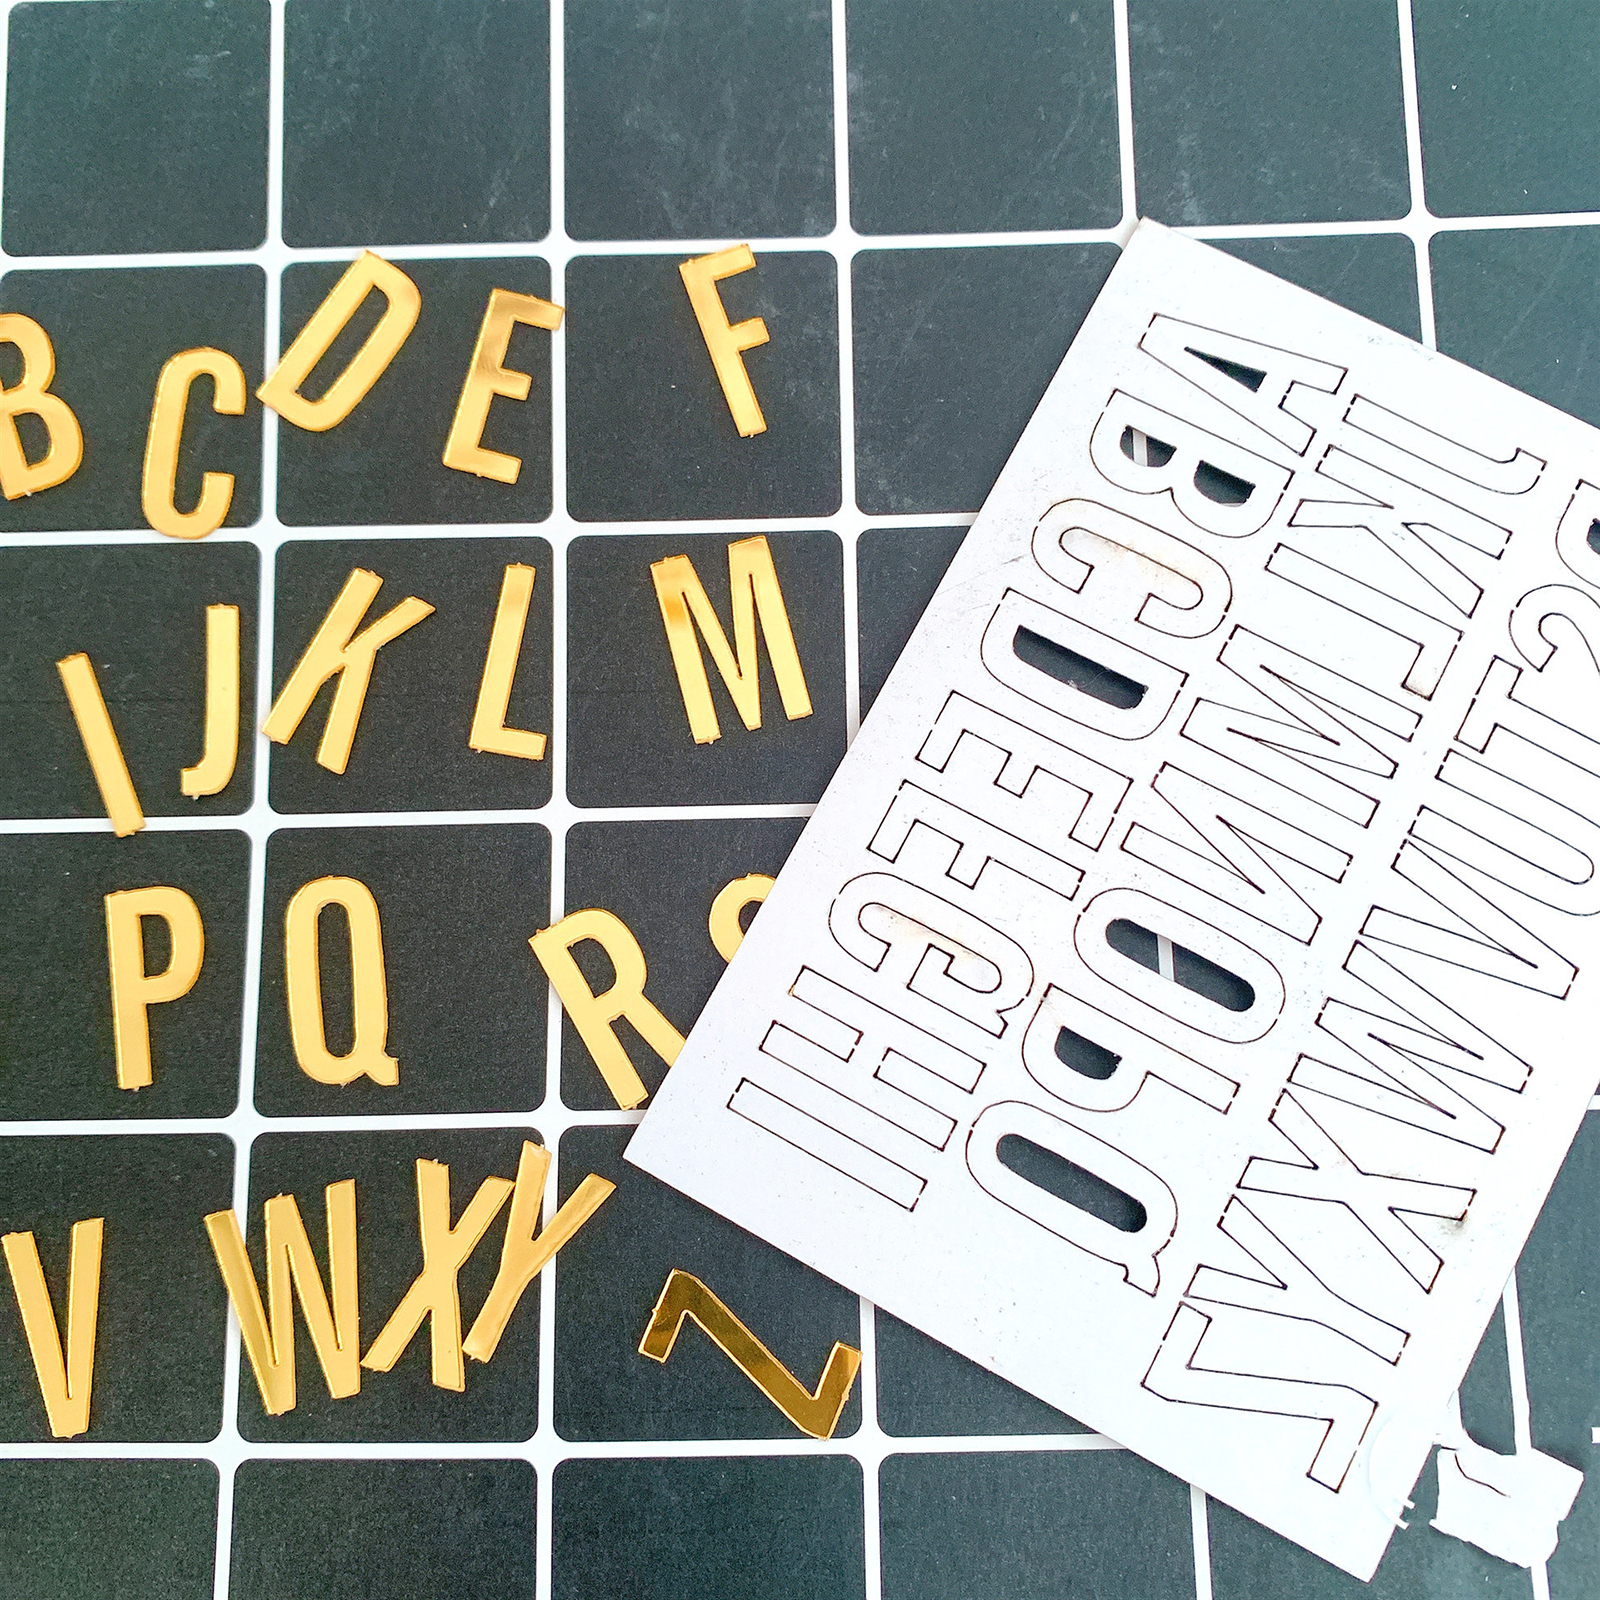 B C D E F
I J K L M
P Q R S
V W X Y Z
A B C D E F G H I
J K L M N O P Q
R S T U V W X Y Z